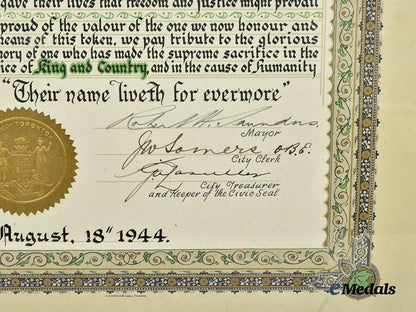 gave their lives that freedom and justice might prevail
proud of the valour of the one we now honour and
means of this token, we pay tribute to the glorious
mory of one who has made the supreme sacrifice in the
ice of King and Country, and in the cause of Humanity
"Their name liveth for evermore"
TORONTO
Robert H. Saunders.
Mayor
JW Somers O.B.E.
City Clerk
City Treasurer
and Keeper of the Civic Seal
August, 18th 1944.
eMedals